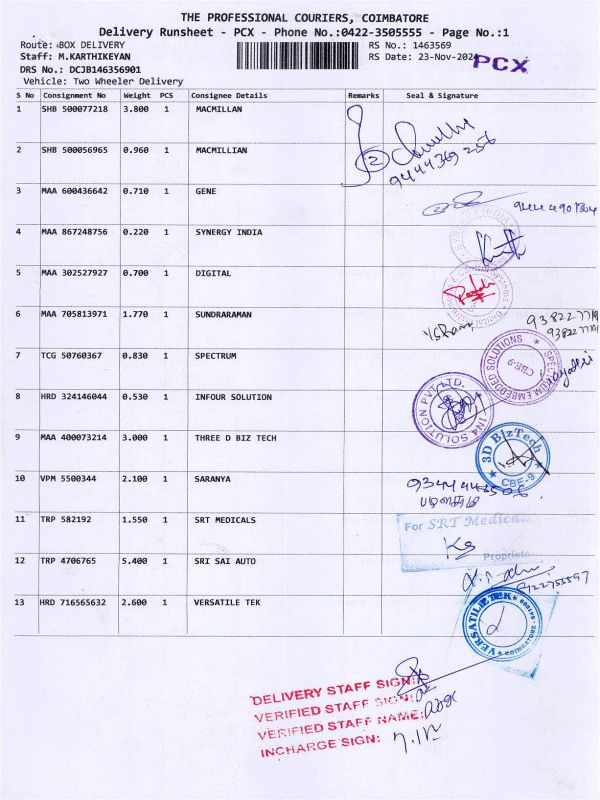 THE PROFESSIONAL COURIERS, COIMBATORE
Delivery Runsheet - PCX - Phone No.:0422-3505555 - Page No.:1
Route: BOX DELIVERY
RS No.: 1463569
Staff: M.KARTHIKEYAN
RS Date: 23-Nov-2024
PCX
DRS No.: DCJB146356901
Vehicle: Two Wheeler Delivery
S No Consignment No Weight PCS Consignee Details Remarks Seal & Signature
1 SHB 500077218 3.800 1 MACMILLAN
2 SHB 500056965 0.960 1 MACMILLIAN
2
9444369256
3 MAA 600436642 0.710 1 GENE
4 MAA 867248756 0.220 1 SYNERGY INDIA
5 MAA 302527927 0.700 1 DIGITAL
6 MAA 705813971 1.770 1 SUNDRARAMAN
7 TCG 50760367 0.830 1 SPECTRUM
SPECTRUM EMBEDDED SOLUTIONS
CBE-9
8 HRD 324146044 0.530 1 INFOUR SOLUTION
IN4 SOLUTION PVT LTD.
9 MAA 400073214 3.000 1 THREE D BIZ TECH
3D BizTech
CBE-9
10 VPM 5500344 2.100 1 SARANYA
11 TRP 582192 1.550 1 SRT MEDICALS
For SRT Medicals
12 TRP 4706765 5.400 1 SRI SAI AUTO
13 HRD 716565632 2.600 1 VERSATILE TEK
VERSATILE TEK
COIMBATORE
DELIVERY STAFF SIGN:
VERIFIED STAFF SIGN:
VERIFIED STAFF NAME:
INCHARGE SIGN: